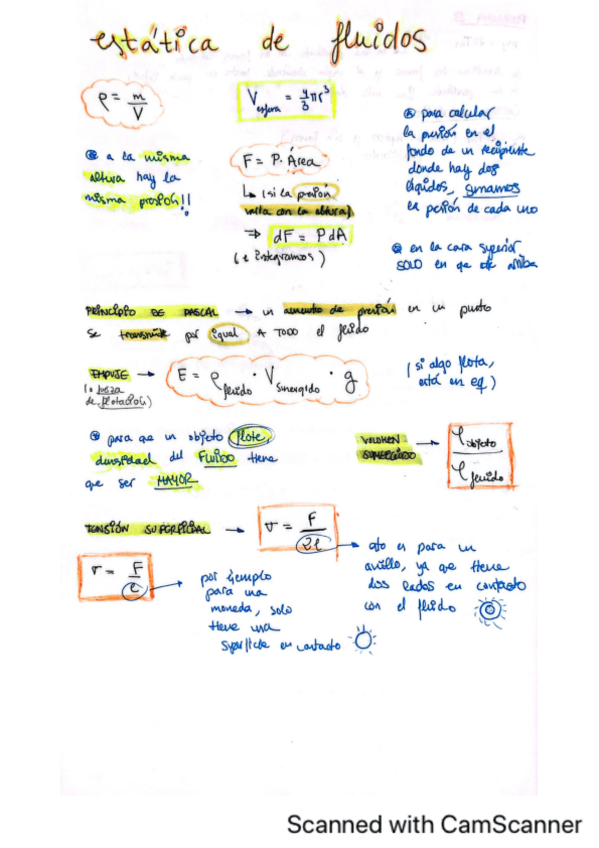 estática de fluidos
ρ = m/V
V esfera = 4/3 πr³
@ a la misma
altura hay la
misma presión!!
F = P. Área
↳ (si la presión
varía con la altura)
⇒ dF = P dA
(e integramos)
@ para calcular
la presión en el
fondo de un recipiente
donde hay dos
líquidos, sumamos
la presión de cada uno
@ en la cara superior
SOLO en qe de arriba
PRINCIPIO DE PASCAL → un aumento de presión en un punto
se transmite por igual A TODO el fluido
EMPUJE → E = ρ fluido · V sumergido · g
(o fuerza
de flotación)
(si algo flota,
está en eq)
@ para que un objeto flote
densidad del FLUIDO tiene
que ser MAYOR
VOLUMEN
SUMERGIDO → ρ objeto / ρ fluido
TENSIÓN SUPERFICIAL → σ = F/2l
→ esto es para un
anillo, ya que tiene
dos lados en contacto
con el fluido
σ = F/l
→ por ejemplo
para una
moneda, solo
tiene una
superficie en contacto
Scanned with CamScanner